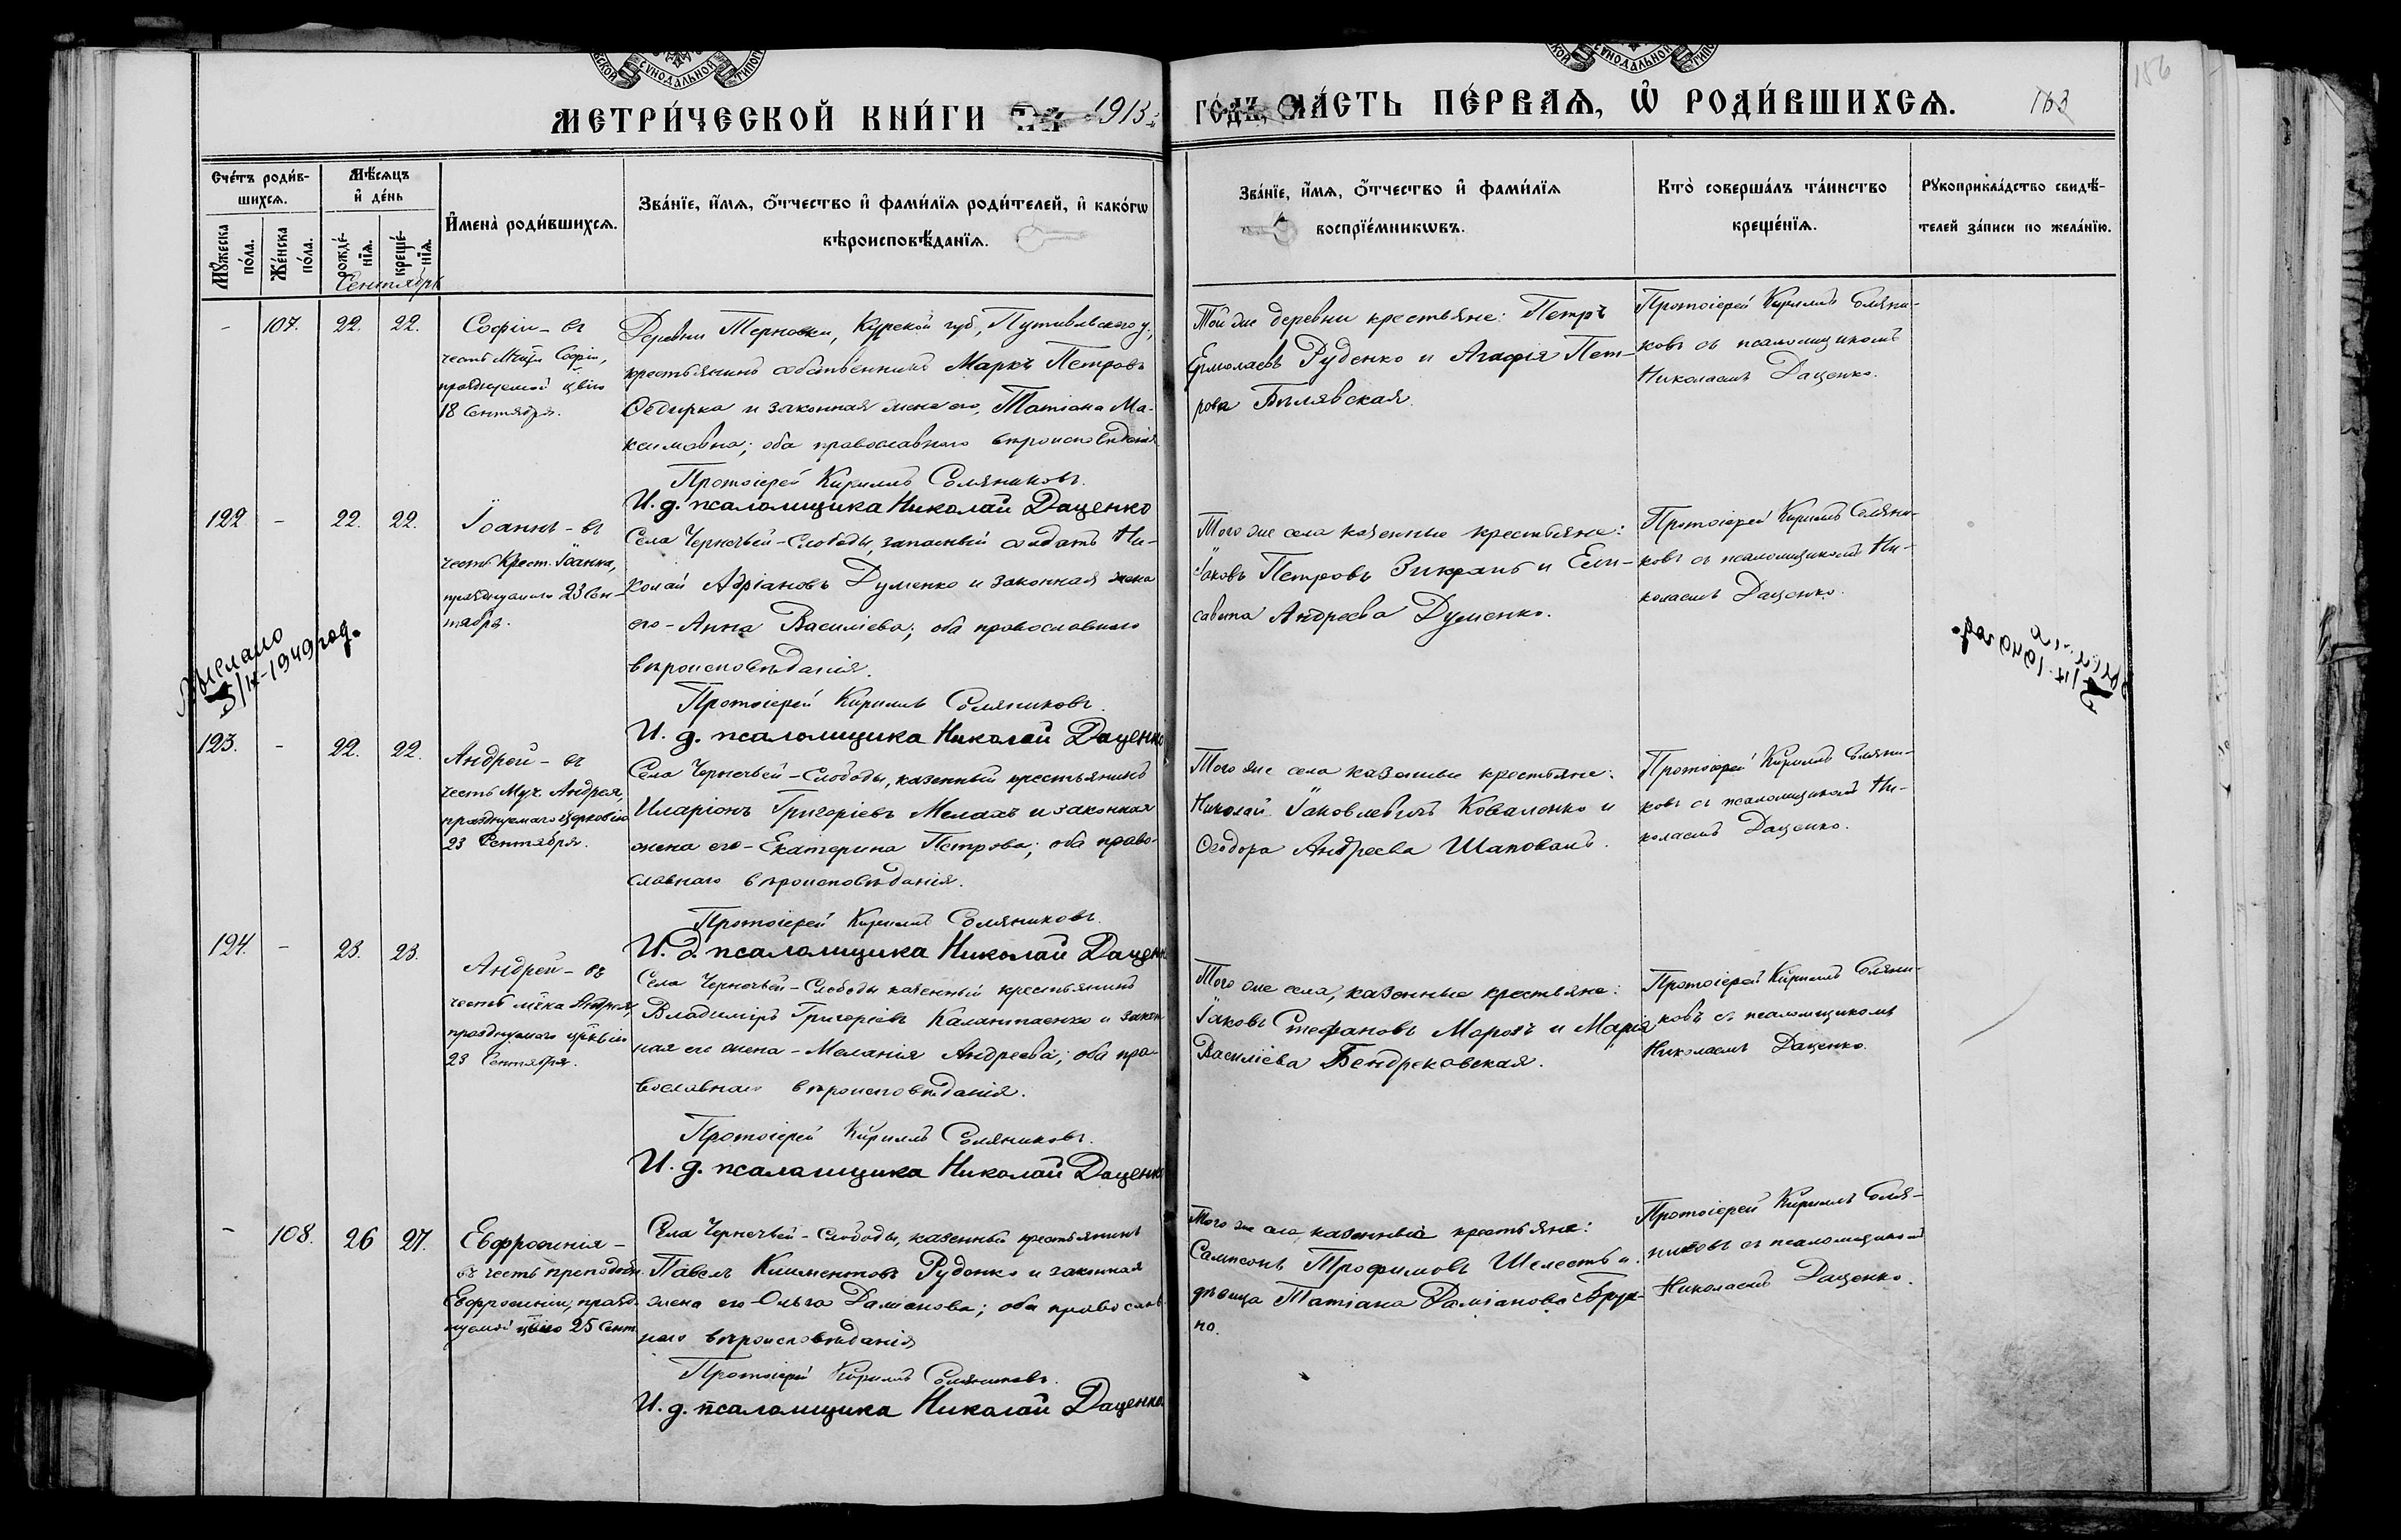 СУНОДАЛЬНОЙ
СУНОДАЛЬНОЙ
МЕТРИ́ЧЕСКОЙ КНИ́ГИ 1913
ГО́ДЪ, ЧА́СТЬ ПЕ́РВАѦ, Ѡ҆ РОДИ́ВШИХСѦ.
163
156
Сче́тъ роди́в-
шихсѧ.
Мꙋ́жеска
по́ла.
Же́нска
по́ла.
Мѣ́сѧцъ
и҆ де́нь
рожде́-
нїѧ.
креще́-
нїѧ.
Сентябрь
И҆мена̀ роди́вшихсѧ.
Зва́нїе, и҆́мѧ, о҆́тчество и҆ фами́лїѧ роди́телей, и҆ како́гѡ
вѣроисповѣ́данїѧ.
Зва́нїе, и҆́мѧ, о҆́тчество и҆ фами́лїѧ
воспрїе́мникѡвъ.
Кто̀ соверша́лъ та́инство
креще́нїѧ.
Рꙋкоприкла́дство свидѣ́-
телей за́писи по жела́нїю.
- 107. 22. 22.
Софія - въ
честь Мчцы Софіи,
празднуемой црквію
18 Сентября.
Деревни Терновки, Курской губ., Путивльскаго у.,
крестьянинъ собственникъ Маркъ Петровъ
Ободырка и законная жена его, Татіана Ма-
ксимовна; оба православнаго вѣроисповѣданія
Протоіерей Кириллъ Соляниковъ.
И. д. псаломщика Николай Даценко
Той же деревни крестьяне: Петръ
Ермолаевъ Руденко и Агафія Пет-
рова Билявская.
Протоіерей Кириллъ Соляни-
ковъ съ псаломщикомъ
Николаемъ Даценко.
122 - 22. 22.
Іоаннъ - въ
честь Крест. Іоанна,
празднуемаго 23 Сен-
тября.
Села Черничьей-Слободы, запасный солдатъ Ни-
колай Адріановъ Думенко и законная жена
его - Анна Василіева; оба православнаго
вѣроисповѣданія.
Протоіерей Кириллъ Соляниковъ.
И. д. псаломщика Николай Даценко
Того же села казенные крестьяне:
Іаковъ Петровъ Зикрань и Ели-
савета Андреева Думенко.
Протоіерей Кириллъ Соляни-
ковъ съ псаломщикомъ Ни-
колаемъ Даценко.
Выслано
1949 год.
123. - 22. 22.
Андрей - въ
честь Муч. Андрея,
празднуемаго церковію
23 Сентября.
Села Черничьей-Слободы, казенный крестьянинъ
Иларіонъ Григоріевъ Мелахъ и законная
жена его - Екатерина Петрова; оба право-
славнаго вѣроисповѣданія.
Протоіерей Кириллъ Соляниковъ.
И. д. псаломщика Николай Даценк
Того же села казенные крестьяне:
Николай Іаковлевичъ Коваленко и
Ѳеодора Андреева Шаповалъ.
Протоіерей Кириллъ Соляни-
ковъ съ псаломщикомъ Ни-
колаемъ Даценко.
124. - 23. 23.
Андрей - въ
честь мчка Андрея,
празднуемаго црквію
23 Сентября.
Села Черничьей-Слободы казенный крестьянинъ
Владиміръ Григоріевъ Калантаенко и закон
ная его жена - Меланія Андреева; оба пра-
вославнаго вѣроисповѣданія.
Протоіерей Кириллъ Соляниковъ.
И. д. псаломщика Николай Даценк
Того же села, казенные крестьяне:
Іаковъ Стефановъ Морозъ и Марія
Василіева Бендрековская.
Протоіерей Кириллъ Соляни-
ковъ съ псаломщикомъ
Николаемъ Даценко.
- 108. 26 27.
Евфросинія -
въ честь преподобн.
Евфросиніи, празд-
нуемой црквію 25 Сент.
Села Черничьей-Слободы, казенный крестьянинъ
Павелъ Климентовъ Руденко и законная
жена его Ольга Даміанова; оба православ
наго вѣроисповѣданія
Протоіерей Кириллъ Соляниковъ.
И. д. псаломщика Николай Даценко
Того же села казенные крестьяне:
Сампсонъ Трофимовъ Шелестъ и
дѣвица Татіана Даміанова
но.
Протоіерей Кириллъ Соля-
никовъ съ псаломщикомъ
Николаемъ Даценко.